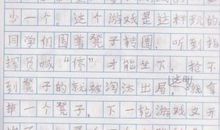 少一个。这个游戏是这样玩的
同学们围着凳子转圈,听到指
挥员喊“停”才能坐下。抢不
到凳子的就被淘汰出局,
掉一个凳子。下一轮游戏又开